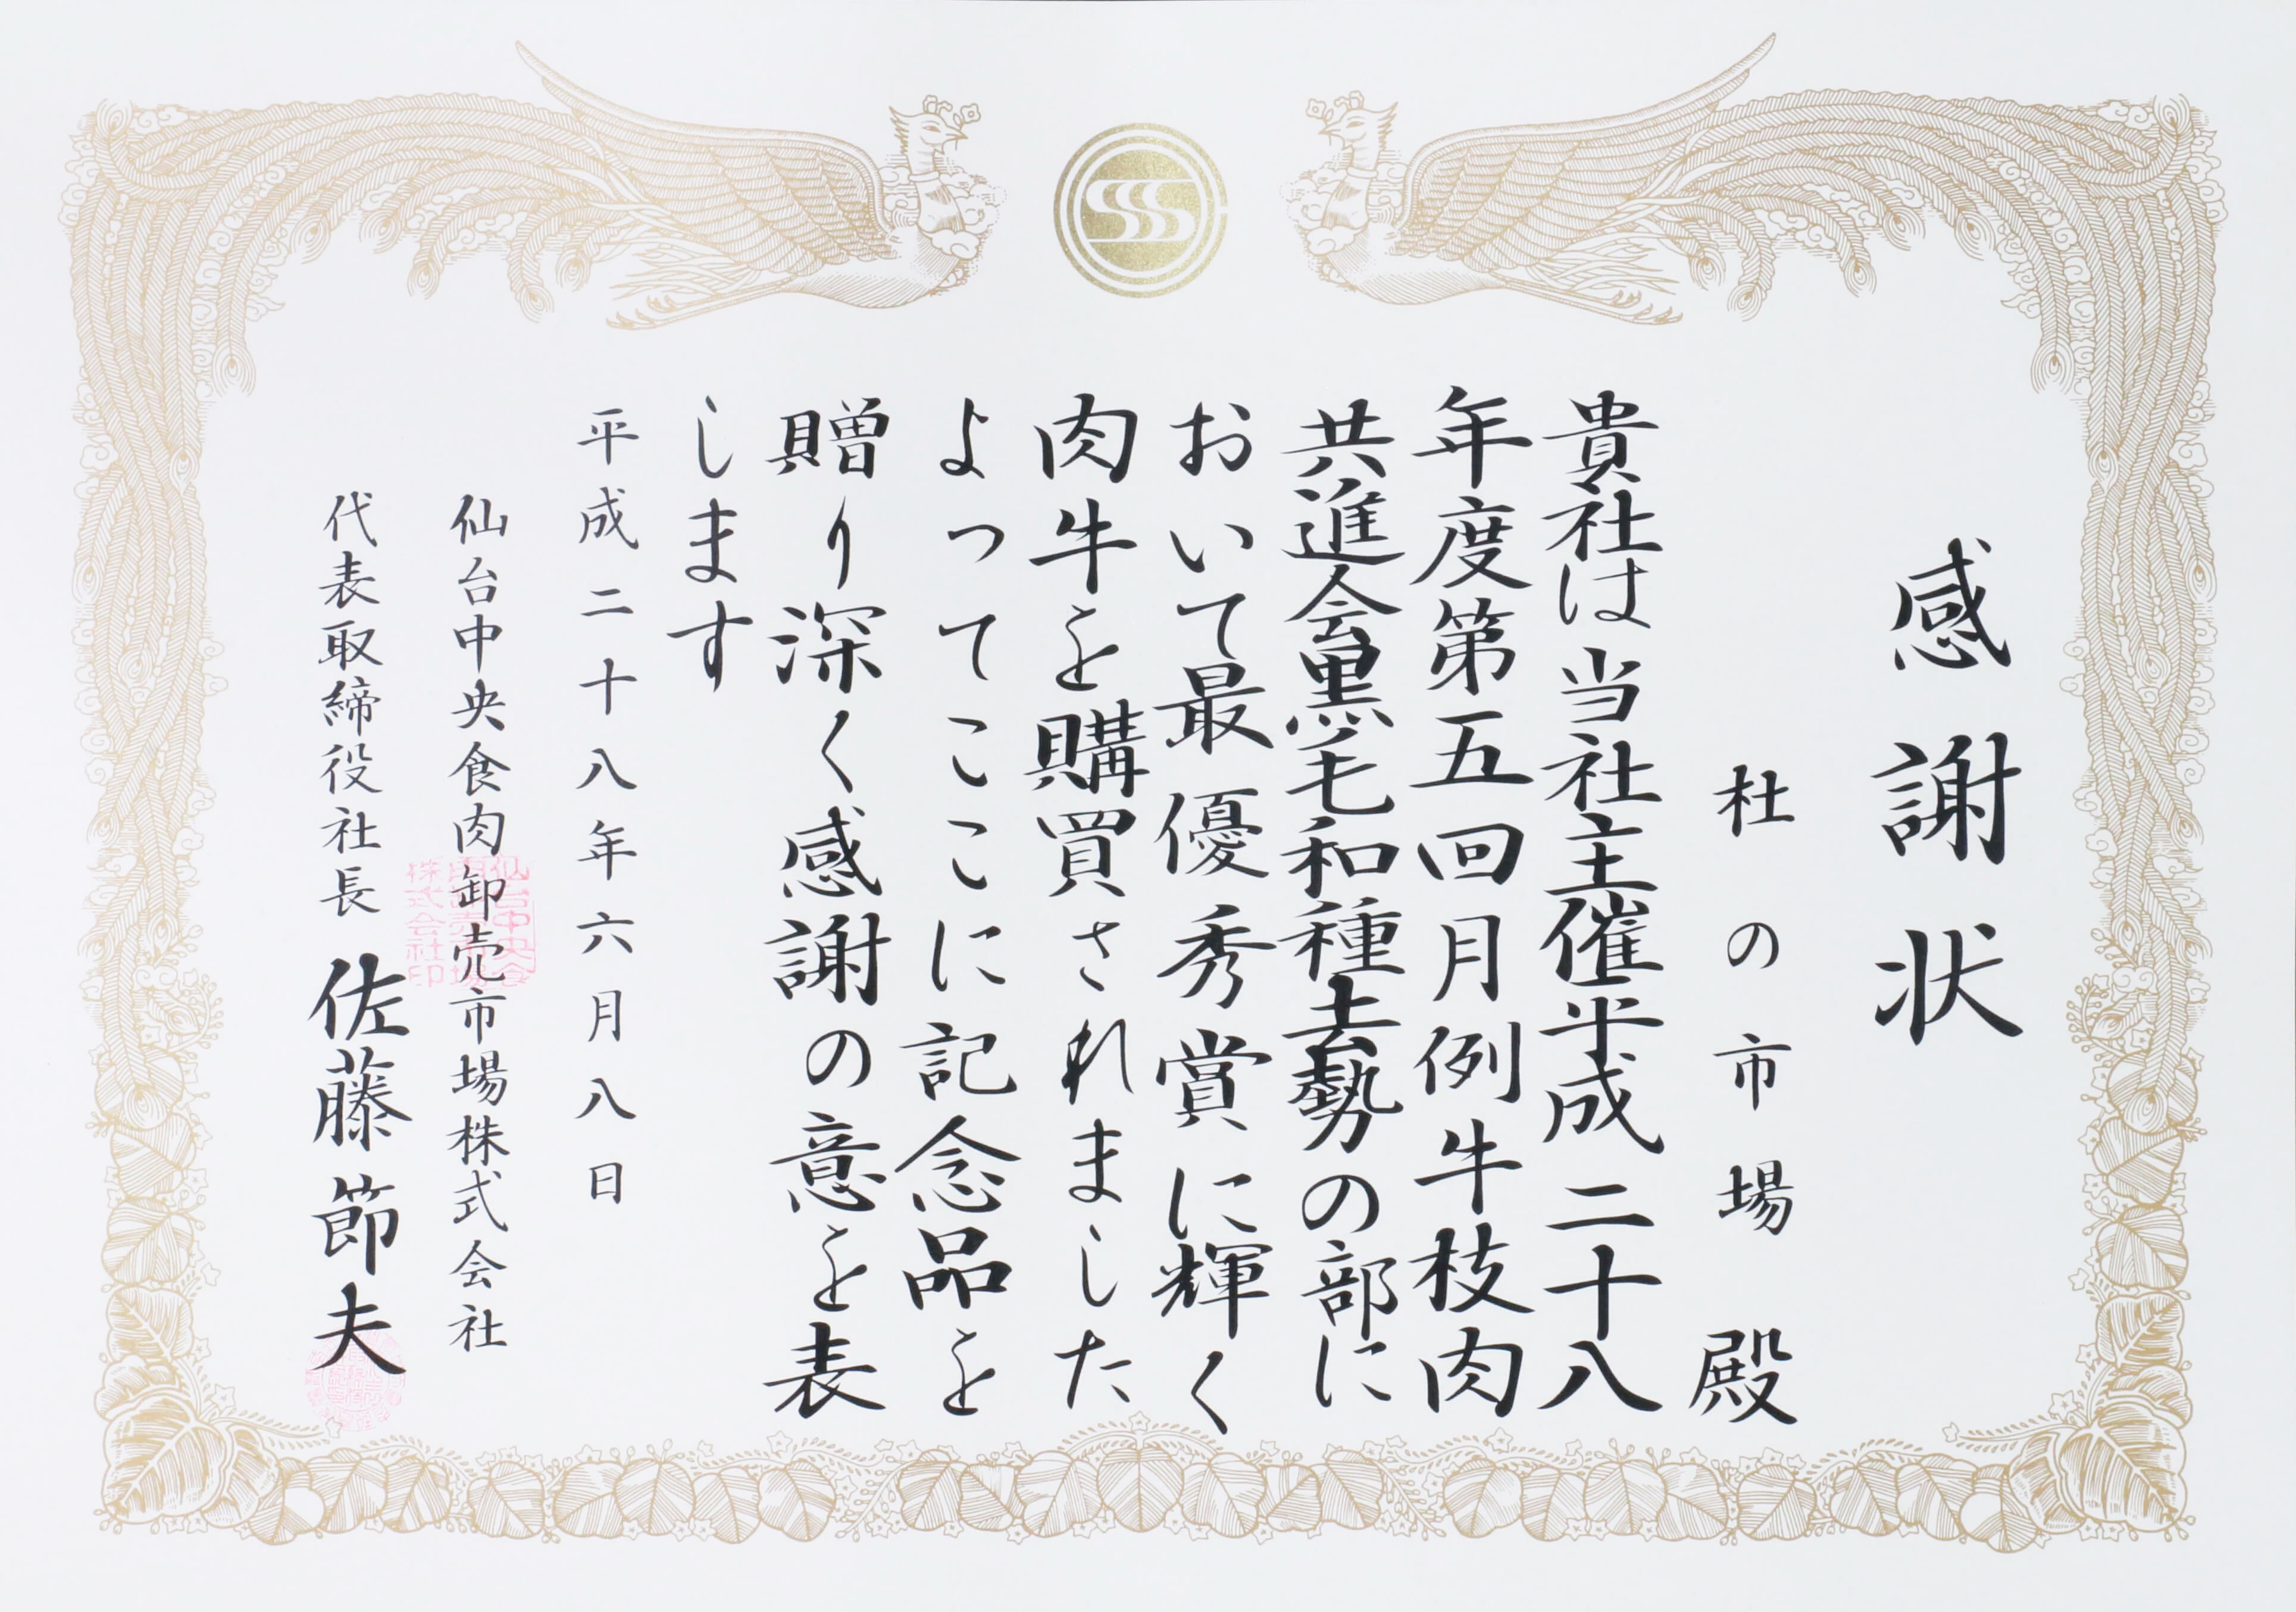 感謝状
杜の市場 殿
貴社は当社主催平成二十八
年度第五回月例牛枝肉
共進会黒毛和種去勢の部に
おいて最優秀賞に輝く
肉牛を購買されました
よってここに記念品を
贈り深く感謝の意を表
します
平成二十八年六月八日
仙台中央食肉卸売市場株式会社
代表取締役社長 佐藤節夫